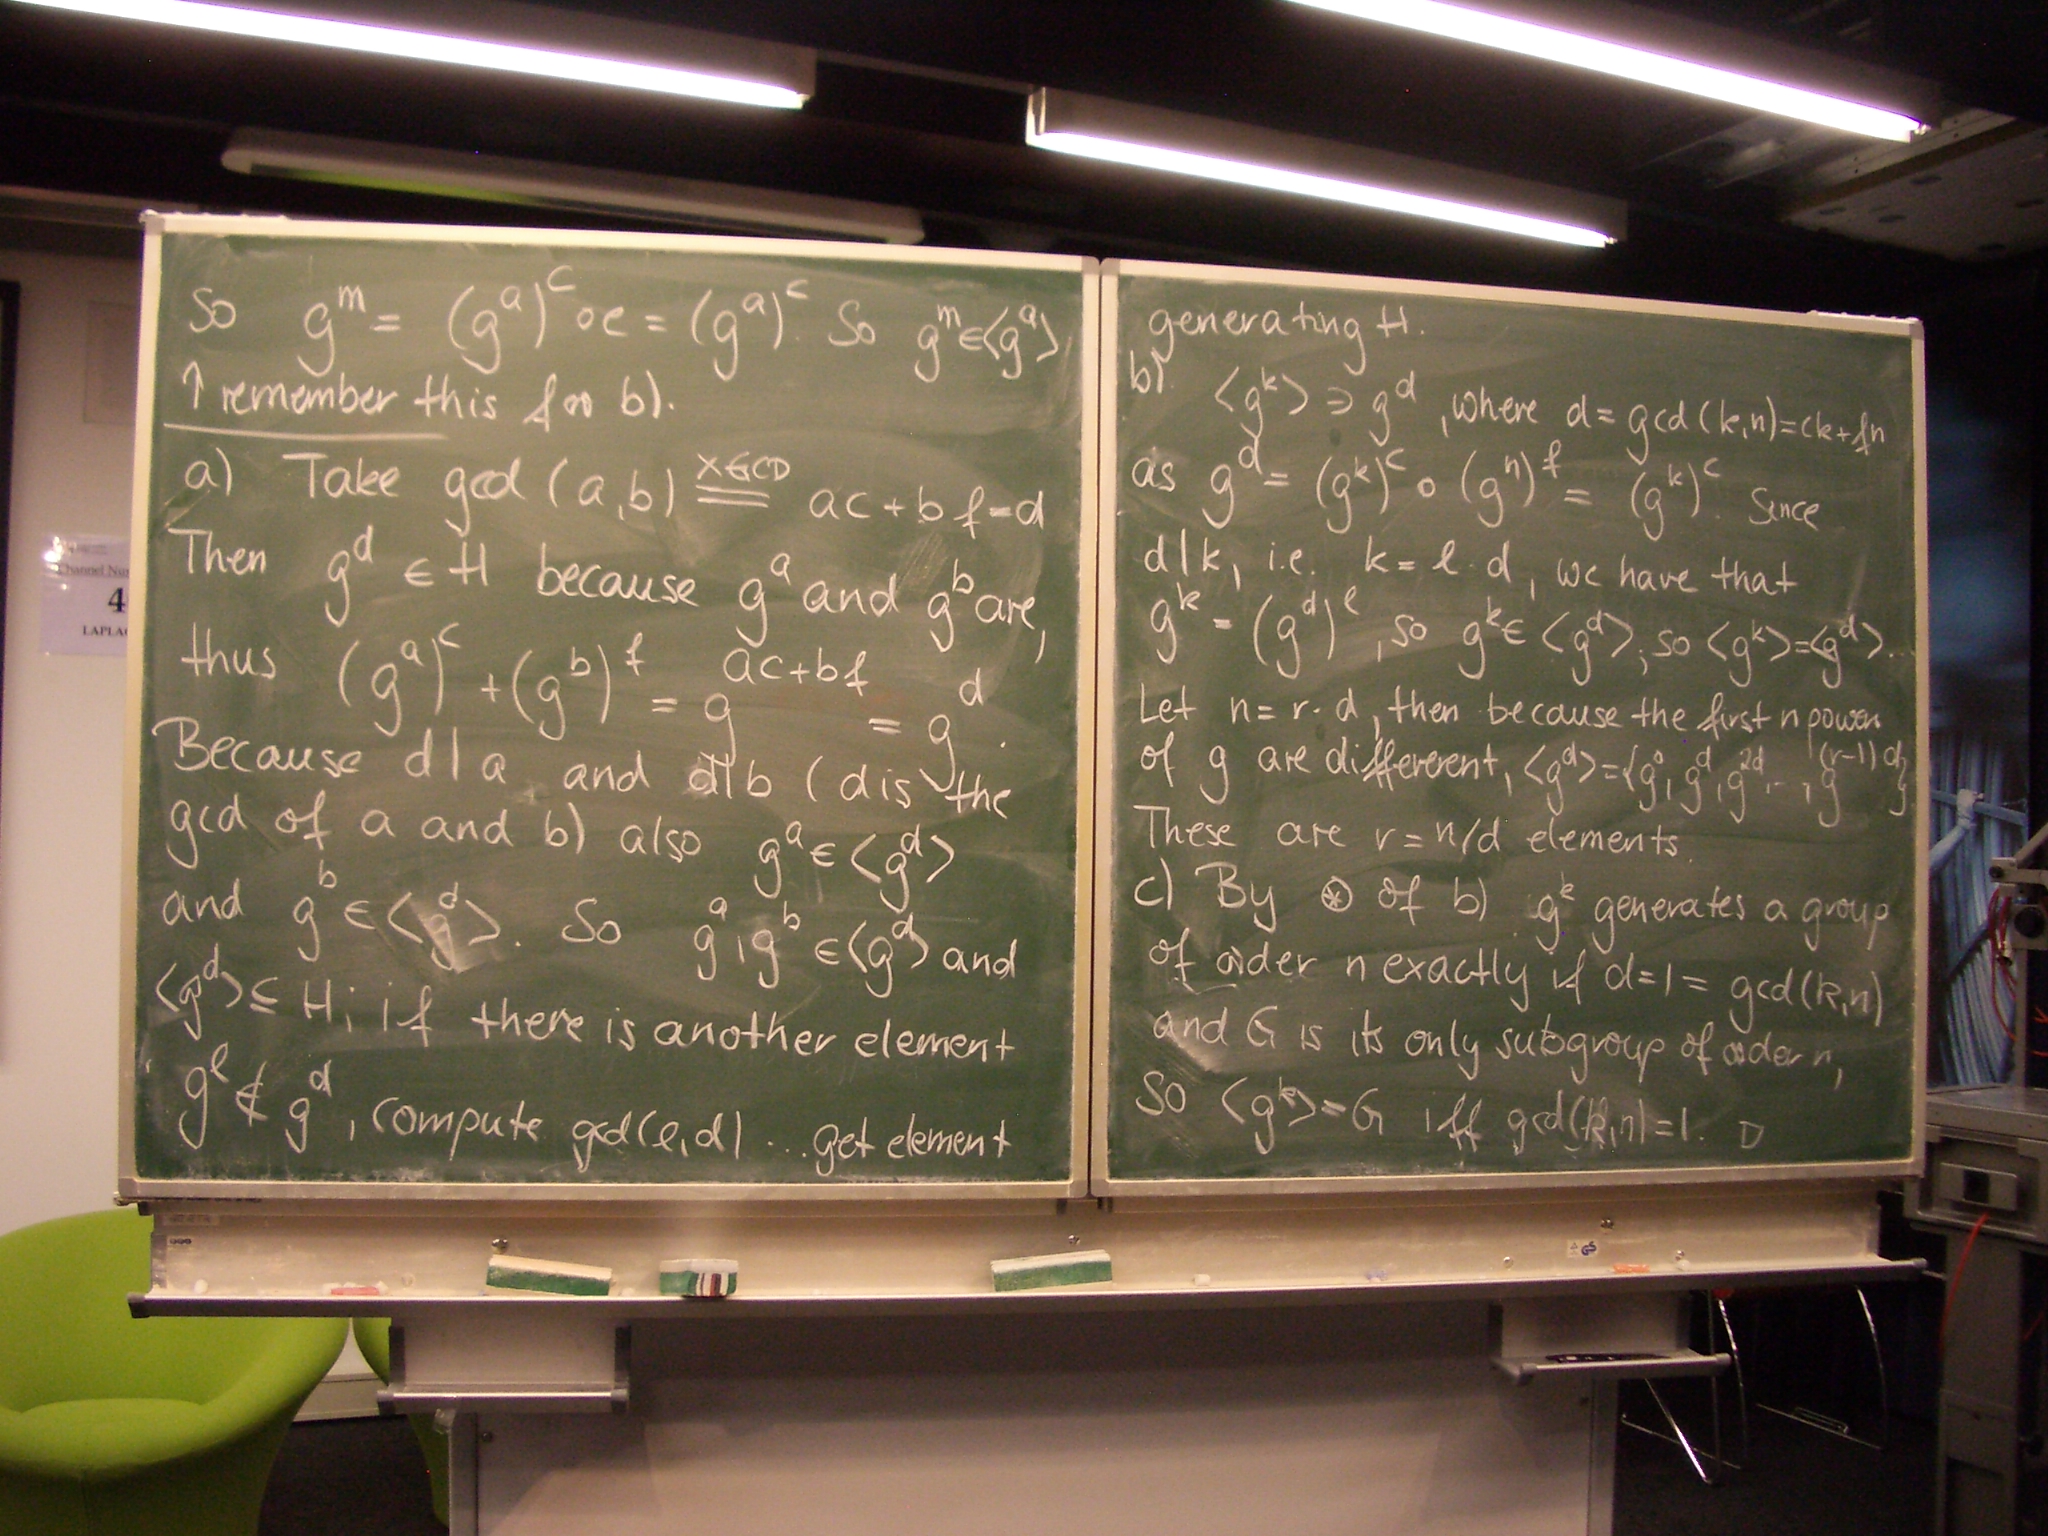 So g^m = (g^a)^c ∘ e = (g^a)^c. So g^m ∈ <g^a>
↑ remember this for b).
a) Take gcd (a,b) XGCD == ac + bf = d
Then g^d ∈ H because g^a and g^b are,
thus (g^a)^c + (g^b)^f = g^(ac+bf) = g^d.
Because d|a and d|b (d is the
gcd of a and b) also g^a ∈ <g^d>
and g^b ∈ <g^d>. So g^a, g^b ∈ <g^d> and
<g^d> ⊆ H; if there is another element
g^l ∉ g^d, compute gcd(l,d) ... get element
generating H.
b) <g^k> ∋ g^d, where d = gcd (k,n) = ck + fn
as g^d = (g^k)^c ∘ (g^n)^f = (g^k)^c. Since
d|k, i.e. k = l·d, we have that
g^k = (g^d)^l, so g^k ∈ <g^d>, so <g^k> = <g^d>...
Let n = r·d, then because the first n powers
of g are differerent, <g^d> = {g^0, g^d, g^2d, ..., g^(r-1)d}
These are r = n/d elements.
c) By ⊛ of b) g^k generates a group
of order n exactly if d=1= gcd(k,n)
and G is its only subgroup of order n,
So <g^k> = G iff gcd(k,n)=1. □
Channel
4
LAPLAC